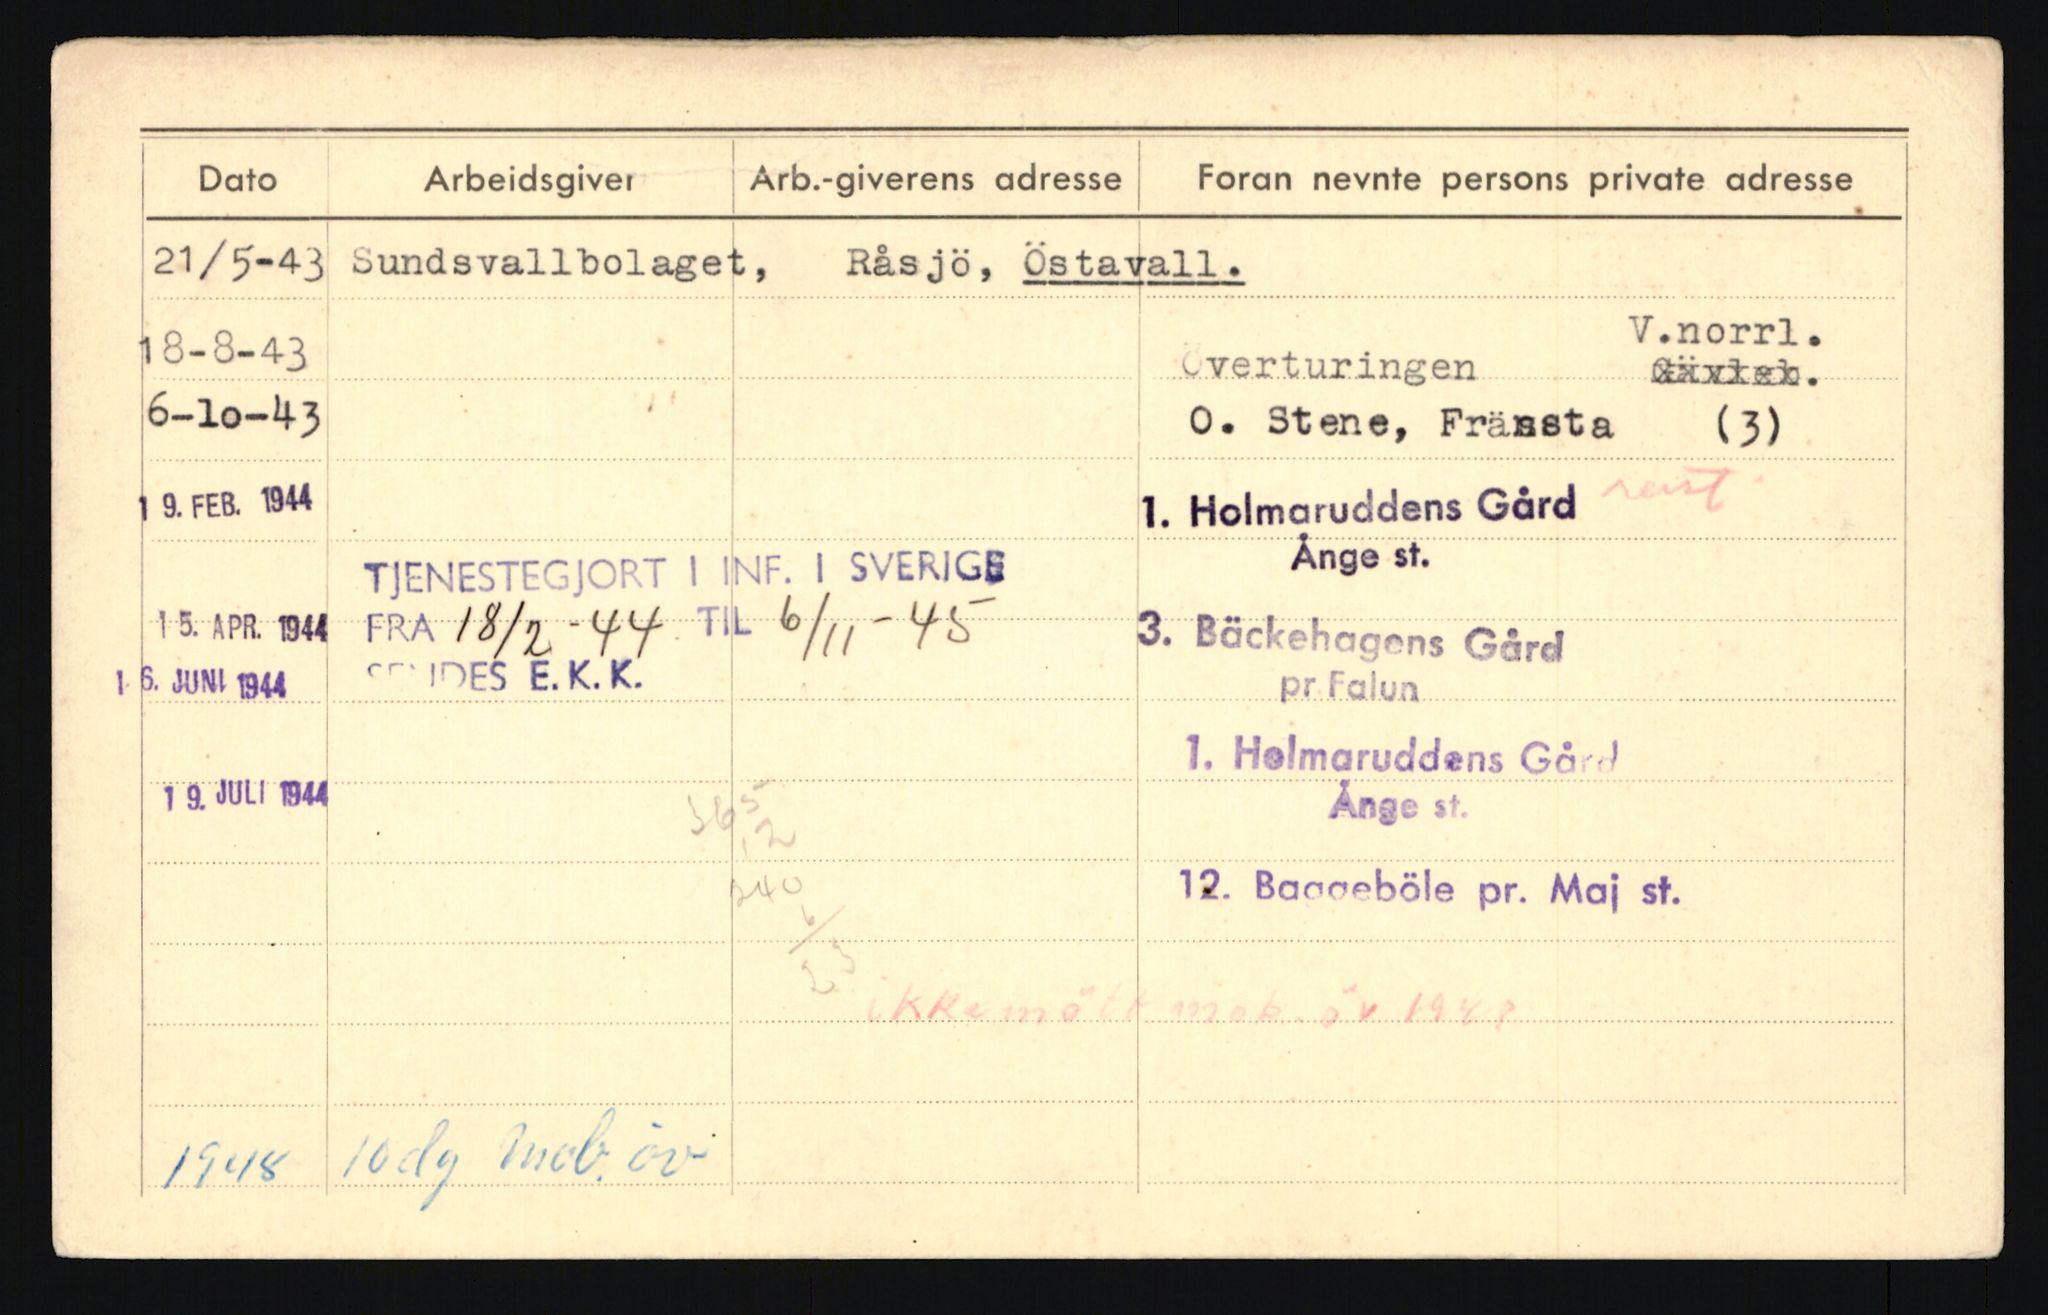 Dato Arbeidsgiver Arb.-giverens adresse Foran nevnte persons private adresse
21/5-43 Sundsvallbolaget, Råsjö, Östavall.
V.norrl.
18-8-43 Överturingen
6-lo-43 O. Stene, Fränsta (3)
19. FEB. 1944 1. Holmaruddens Gård reist
Ånge st.
TJENESTEGJORT I INF. I SVERIGE
15. APR. 1944 FRA 18/2-44 TIL 6/11-45 3. Bäckehagens Gård
16. JUNI 1944 SENDES E.K.K. pr Falun
1. Holmaruddens Gård
19. JULI 1944 Ånge st.
365
12
240
12. Baggeböle pr. Maj st.
ikke mött mob. öv 1948
1948 10 dg Mob. öv